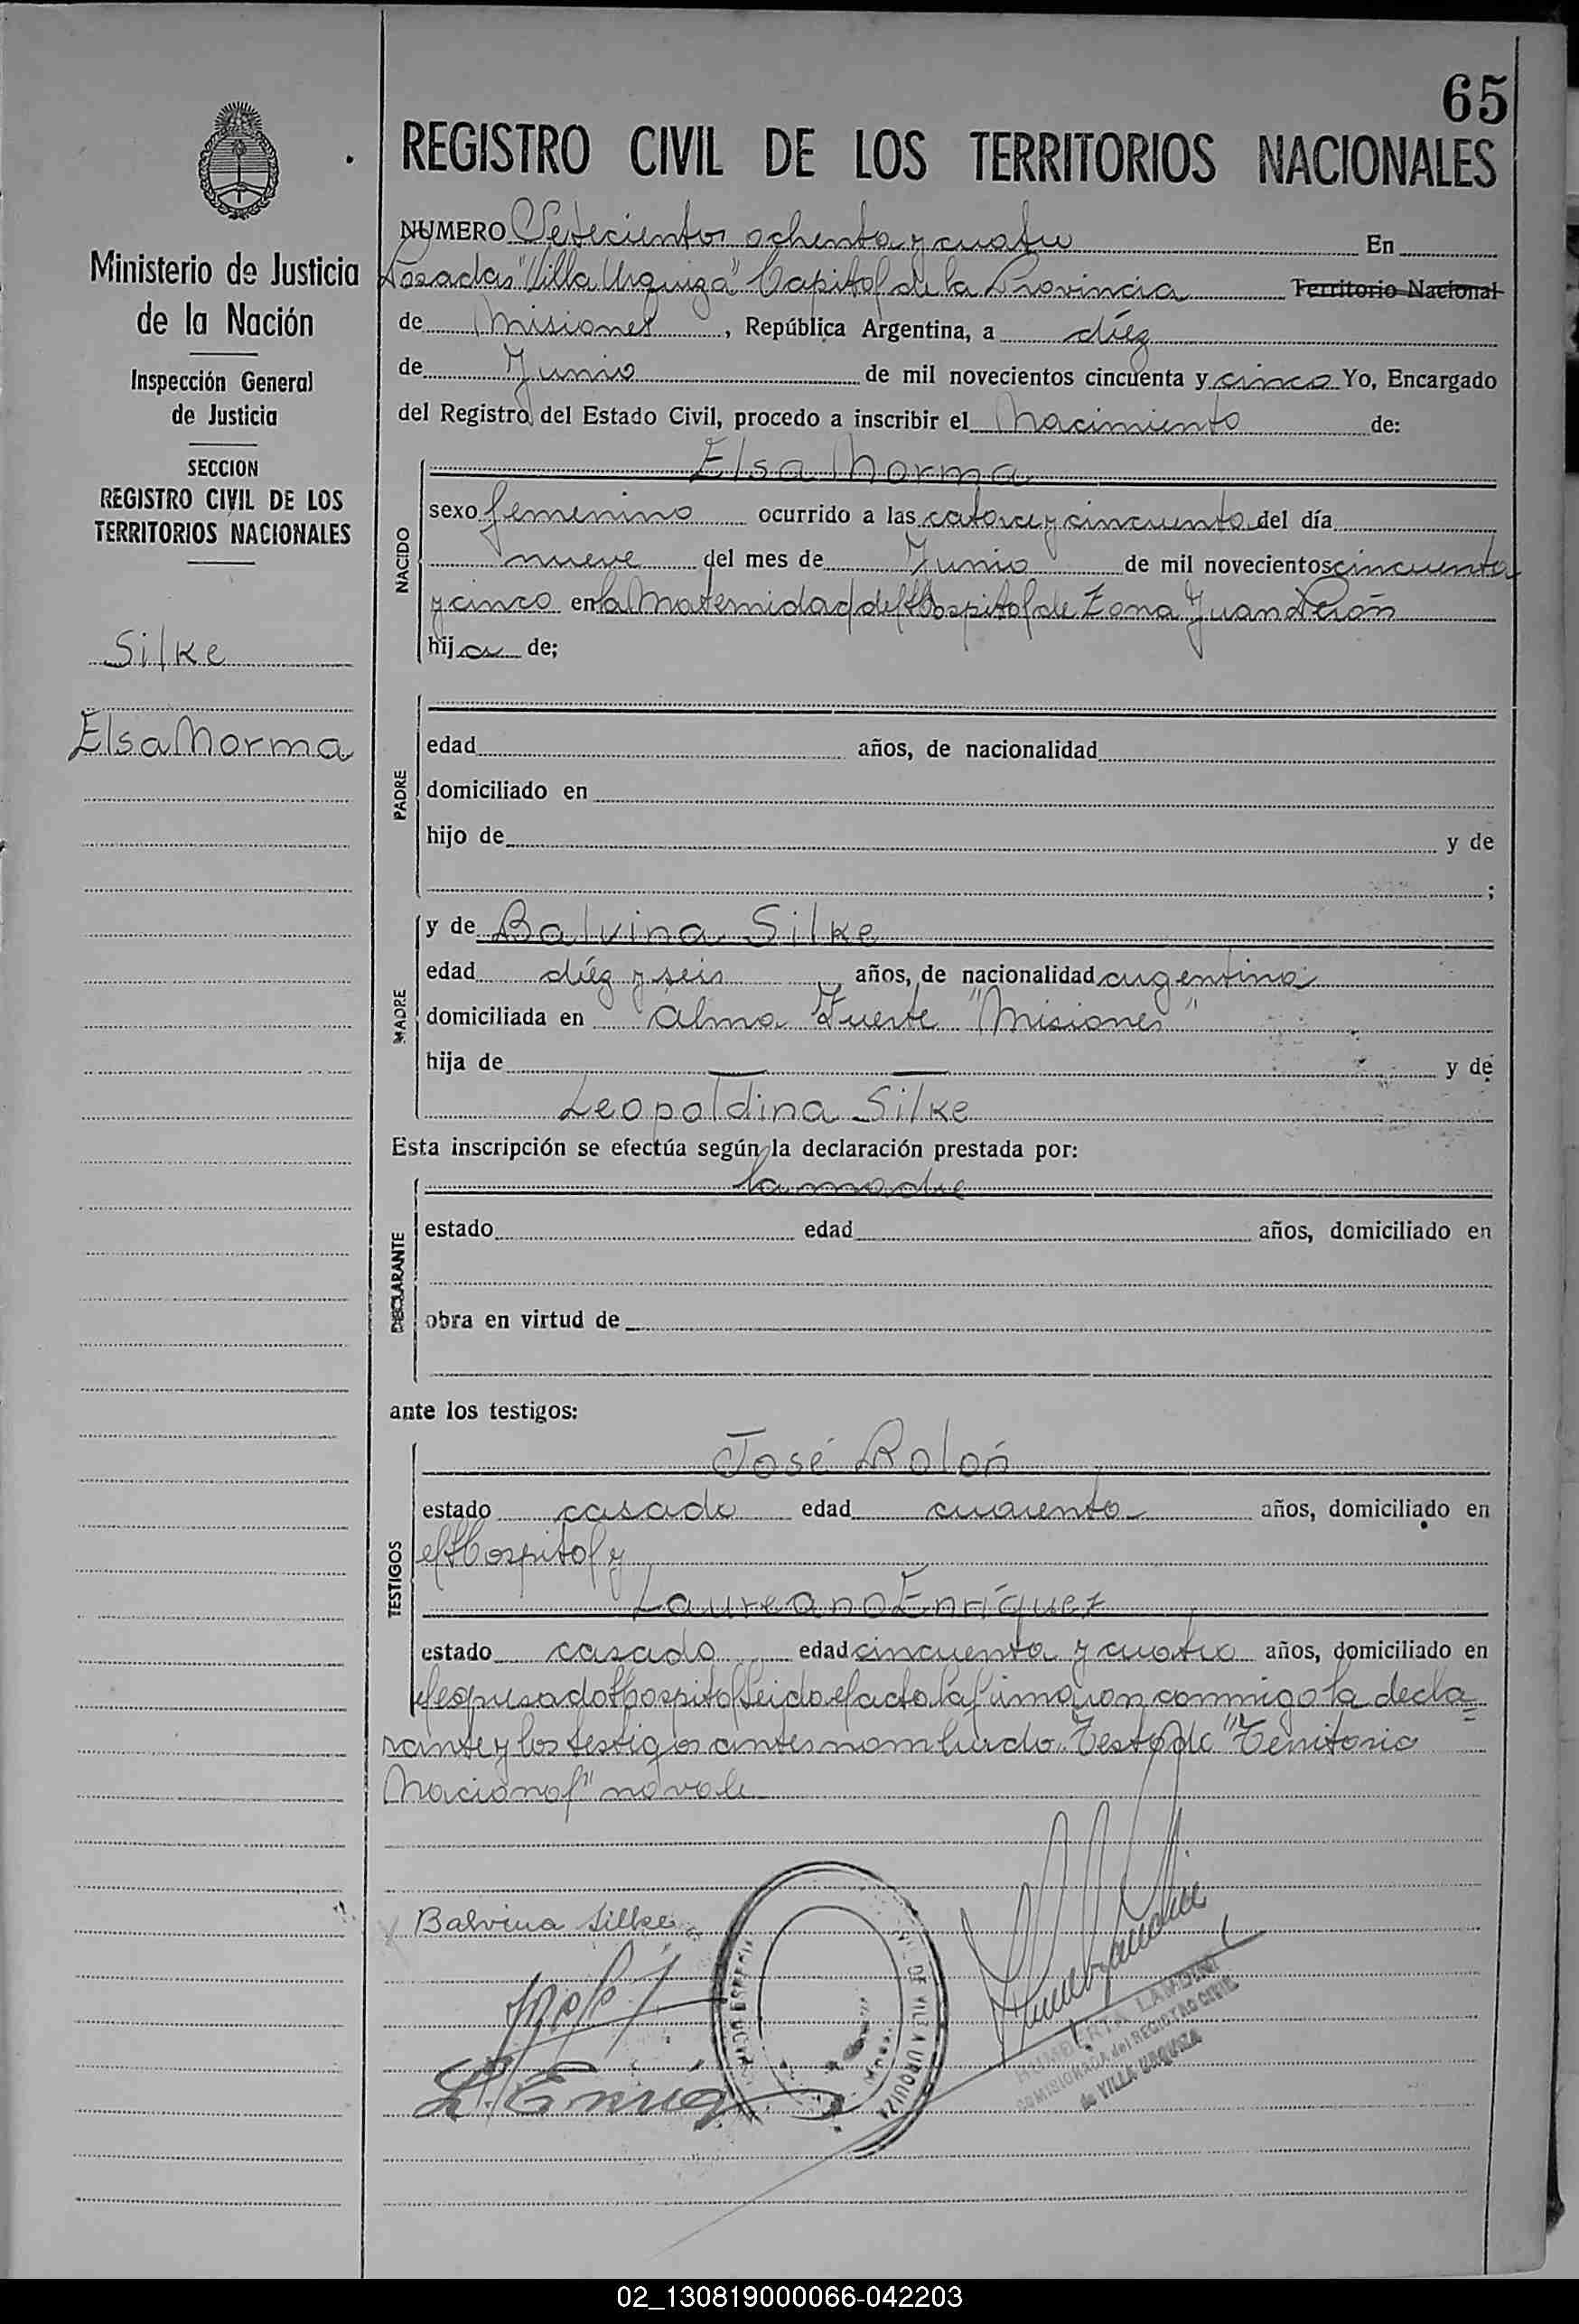 65
REGISTRO CIVIL DE LOS TERRITORIOS NACIONALES
Ministerio de Justicia
de la Nación
Inspección General
de Justicia
SECCION
REGISTRO CIVIL DE LOS
TERRITORIOS NACIONALES
Silke
Elsa Norma
NUMERO Setecientos ochenta y cuatro En
Posadas "Villa Urquiza" Capital de la Provincia Territorio Nacional
de Misiones, República Argentina, a diéz
de Junio de mil novecientos cincuenta y cinco Yo, Encargado
del Registro del Estado Civil, procedo a inscribir el Nacimiento de:
NACIDO
Elsa Norma
sexo femenino ocurrido a las catorce y cincuenta del día
nueve del mes de Junio de mil novecientos cincuenta
y cinco en la Maternidad del Hospital de Zona Juan Perón
hija de;
PADRE
edad años, de nacionalidad
domiciliado en
hijo de y de
;
MADRE
y de Balvina Silke
edad diéz y seis años, de nacionalidad argentina
domiciliada en Alma Fuerte "Misiones"
hija de y de
Leopoldina Silke
Esta inscripción se efectúa según la declaración prestada por:
DECLARANTE
la madre
estado edad años, domiciliado en
obra en virtud de
ante los testigos:
TESTIGOS
José Rolón
estado casado edad cuarenta años, domiciliado en
el Hospital y
Laureano Enríquez
estado casado edad cincuenta y cuatro años, domiciliado en
el expresado Hospital leida el acta la firmaron conmigo la decla=
rante y los testigos antes nombrado. Testado "Territorio
Nacional" no vale
Balvina Silke
L. Enriq
DE VILLA URQUIZA
HUMBERTA LAMDINI
COMISIONADA del REGISTRO CIVIL
de VILLA URQUIZA
02_130819000066-042203